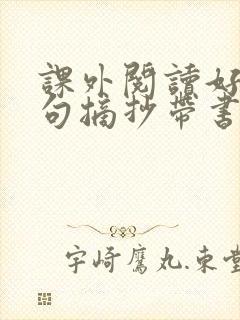 課外閱讀好
句摘抄帶書
宇崎鷹丸.東堂